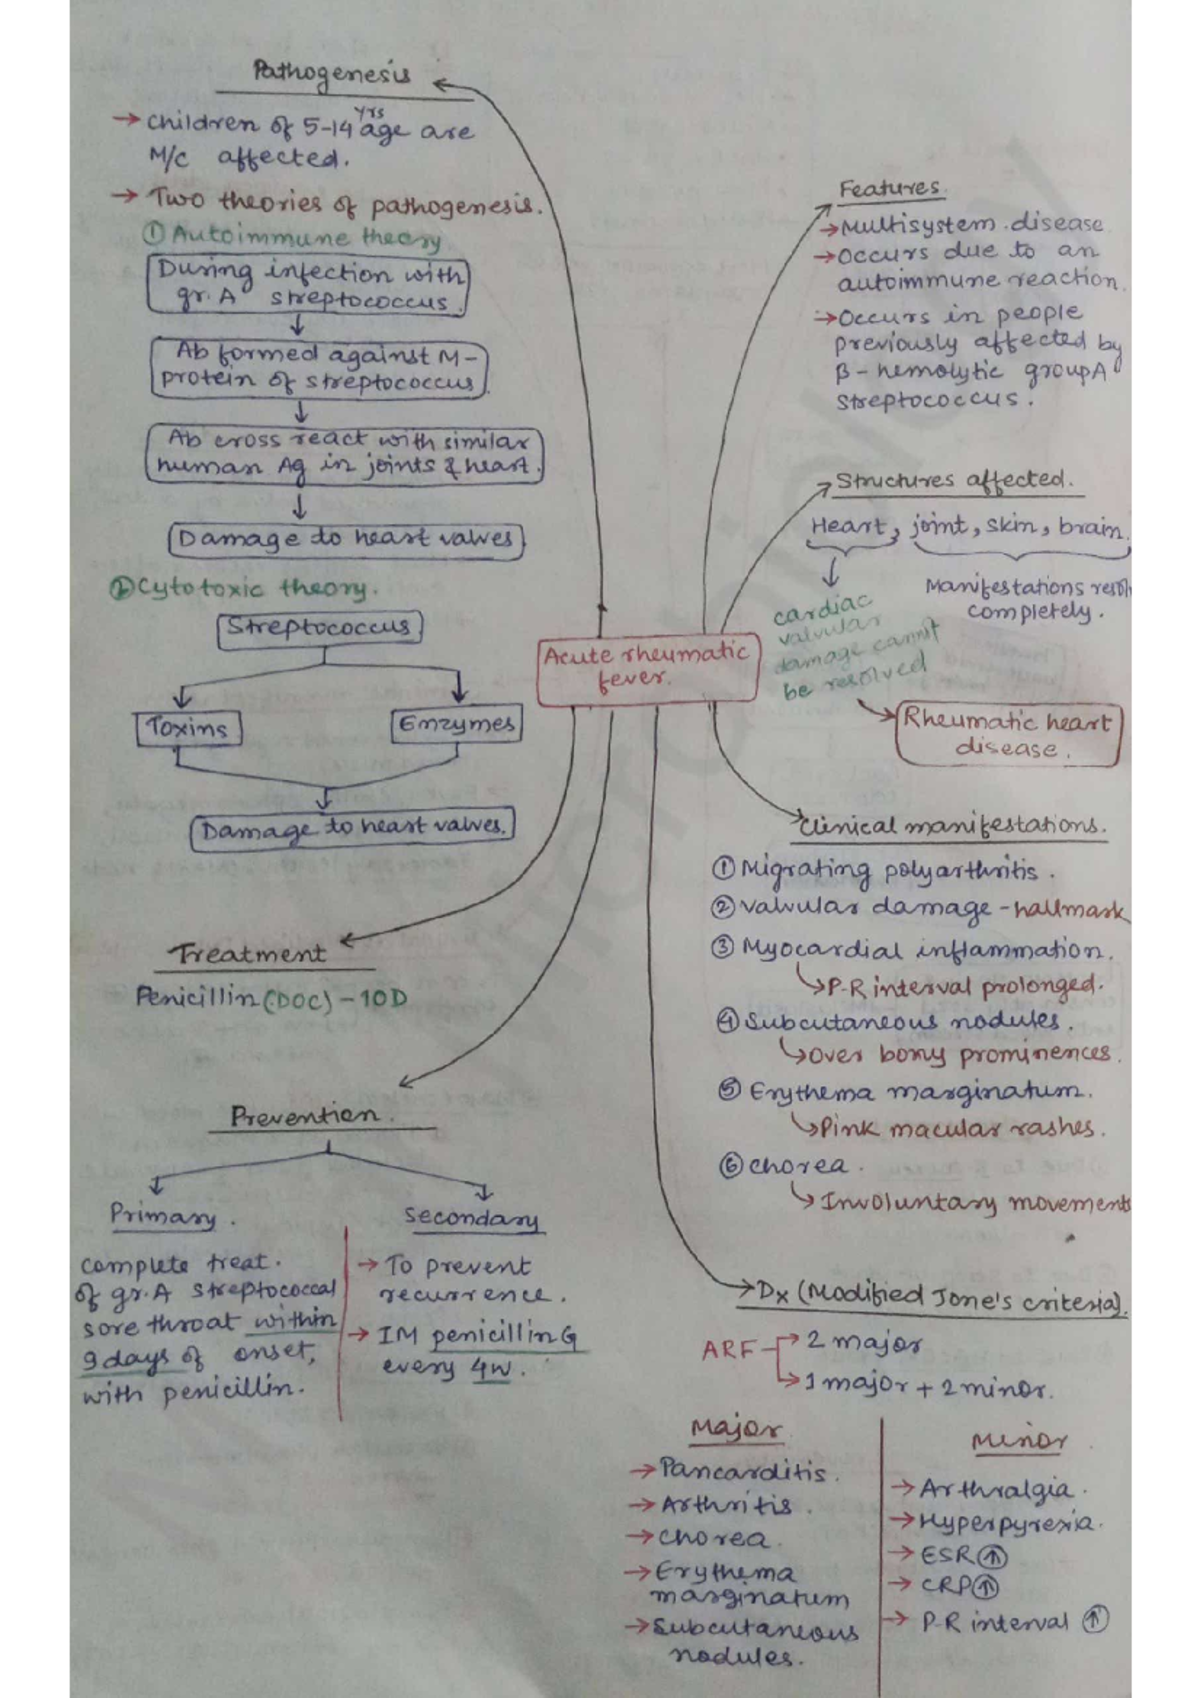 Pathogenesis
→ children of 5-14 yrs age are
M/c affected.
→ Two theories of pathogenesis.
① Autoimmune theory
During infection with
gr. A streptococcus.
Ab formed against M-
protein of streptococcus.
Ab cross react with similar
human Ag in joints & heart.
Damage to heart valves
② Cytotoxic theory.
Streptococcus
Toxins
Enzymes
Damage to heart valves.
Features
→ Multisystem disease
→ Occurs due to an
autoimmune reaction.
→ Occurs in people
previously affected by
β-hemolytic group A
streptococcus.
Structures affected.
Heart, joint, skin, brain.
cardiac
valvular
damage cannot
be resolved
Manifestations resol
completely.
Rheumatic heart
disease.
Acute rheumatic
fever.
Clinical manifestations.
① Migrating polyarthritis.
② Valvular damage - hallmark
③ Myocardial inflammation.
↳ P-R interval prolonged.
④ Subcutaneous nodules.
↳ Over bony prominences.
⑤ Erythema marginatum.
↳ Pink macular rashes.
⑥ chorea.
↳ Involuntary movements
Treatment
Penicillin (DOC) - 10D
Prevention.
Primary.
complete treat.
of gr. A streptococcal
sore throat within
9 days of onset,
with penicillin.
secondary
→ To prevent
recurrence.
→ IM penicillin G
every 4w.
Dx (Modified Jone's criteria).
ARF → 2 major
→ 1 major + 2 minor.
Major
→ Pancarditis.
→ Arthritis.
→ chorea.
→ Erythema
marginatum
→ Subcutaneous
nodules.
Minor
→ Arthralgia.
→ Hyperpyrexia.
→ ESR ↑
→ CRP ↑
→ P-R interval ↑